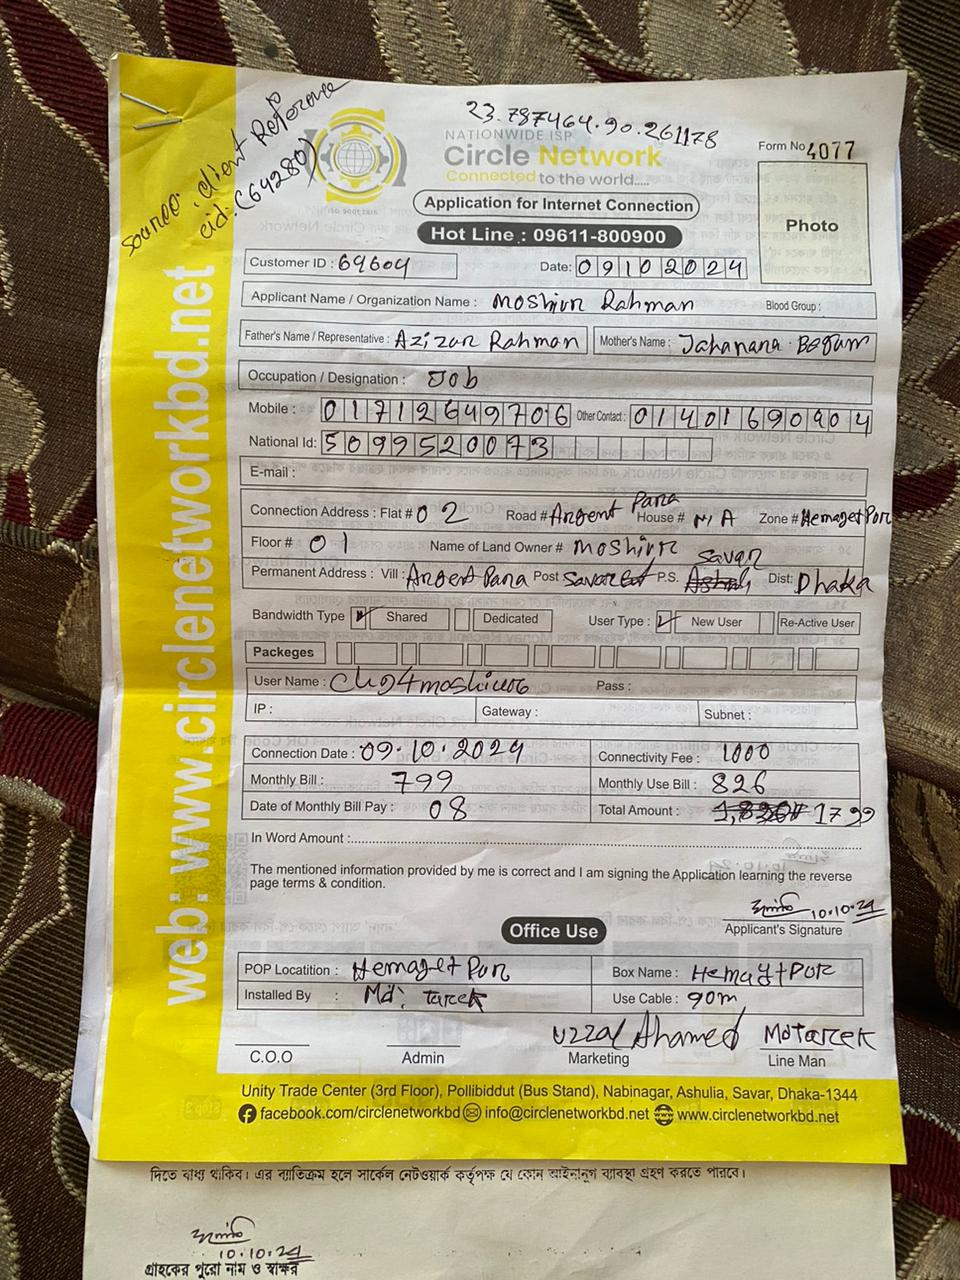 source: client Reference
cid: (64280)
23.787464.90.261178
NATIONWIDE ISP
Circle Network
Connected to the world.....
ISO 9001:2015
Form No 4077
Photo
Application for Internet Connection
Hot Line : 09611-800900
Customer ID : 69604 Date: 09102024
Applicant Name / Organization Name : Moshiur Rahman Blood Group :
Father's Name / Representative : Azizur Rahman Mother's Name : Jahanara Begum
Occupation / Designation : Job
Mobile : 01712649706 Other Contact : 01401690904
National Id: 5099520073
E-mail :
Connection Address : Flat # 02 Road # Para House # N/A Zone #
Floor # 01 Name of Land Owner # Moshiur
Permanent Address : Vill : Para Post P.S. Savar Dist: Dhaka
Bandwidth Type Shared Dedicated User Type : New User Re-Active User
Packeges
User Name : Pass :
IP : Gateway : Subnet :
Connection Date : 09.10.2024 Connectivity Fee : 1000
Monthly Bill : 799 Monthly Use Bill : 826
Date of Monthly Bill Pay : 08 Total Amount : 1799
In Word Amount :
The mentioned information provided by me is correct and I am signing the Application learning the reverse
page terms & condition.
10.10.24
Applicant's Signature
Office Use
POP Locatition : Hemayet Pur Box Name : Hemayet Pur
Installed By : Md: Tarek Use Cable : 90m
Uzzal Ahamed Md Tarek
C.O.O Admin Marketing Line Man
Unity Trade Center (3rd Floor), Pollibiddut (Bus Stand), Nabinagar, Ashulia, Savar, Dhaka-1344
facebook.com/circlenetworkbd info@circlenetworkbd.net www.circlenetworkbd.net
web: www.circlenetworkbd.net
দিতে বাধ্য থাকিব। এর ব্যতিক্রম হলে সার্কেল নেটওয়ার্ক কর্তৃপক্ষ যে কোন আইনানুগ ব্যবস্থা গ্রহণ করতে পারবে।
10.10.24
গ্রাহকের পুরো নাম ও স্বাক্ষর